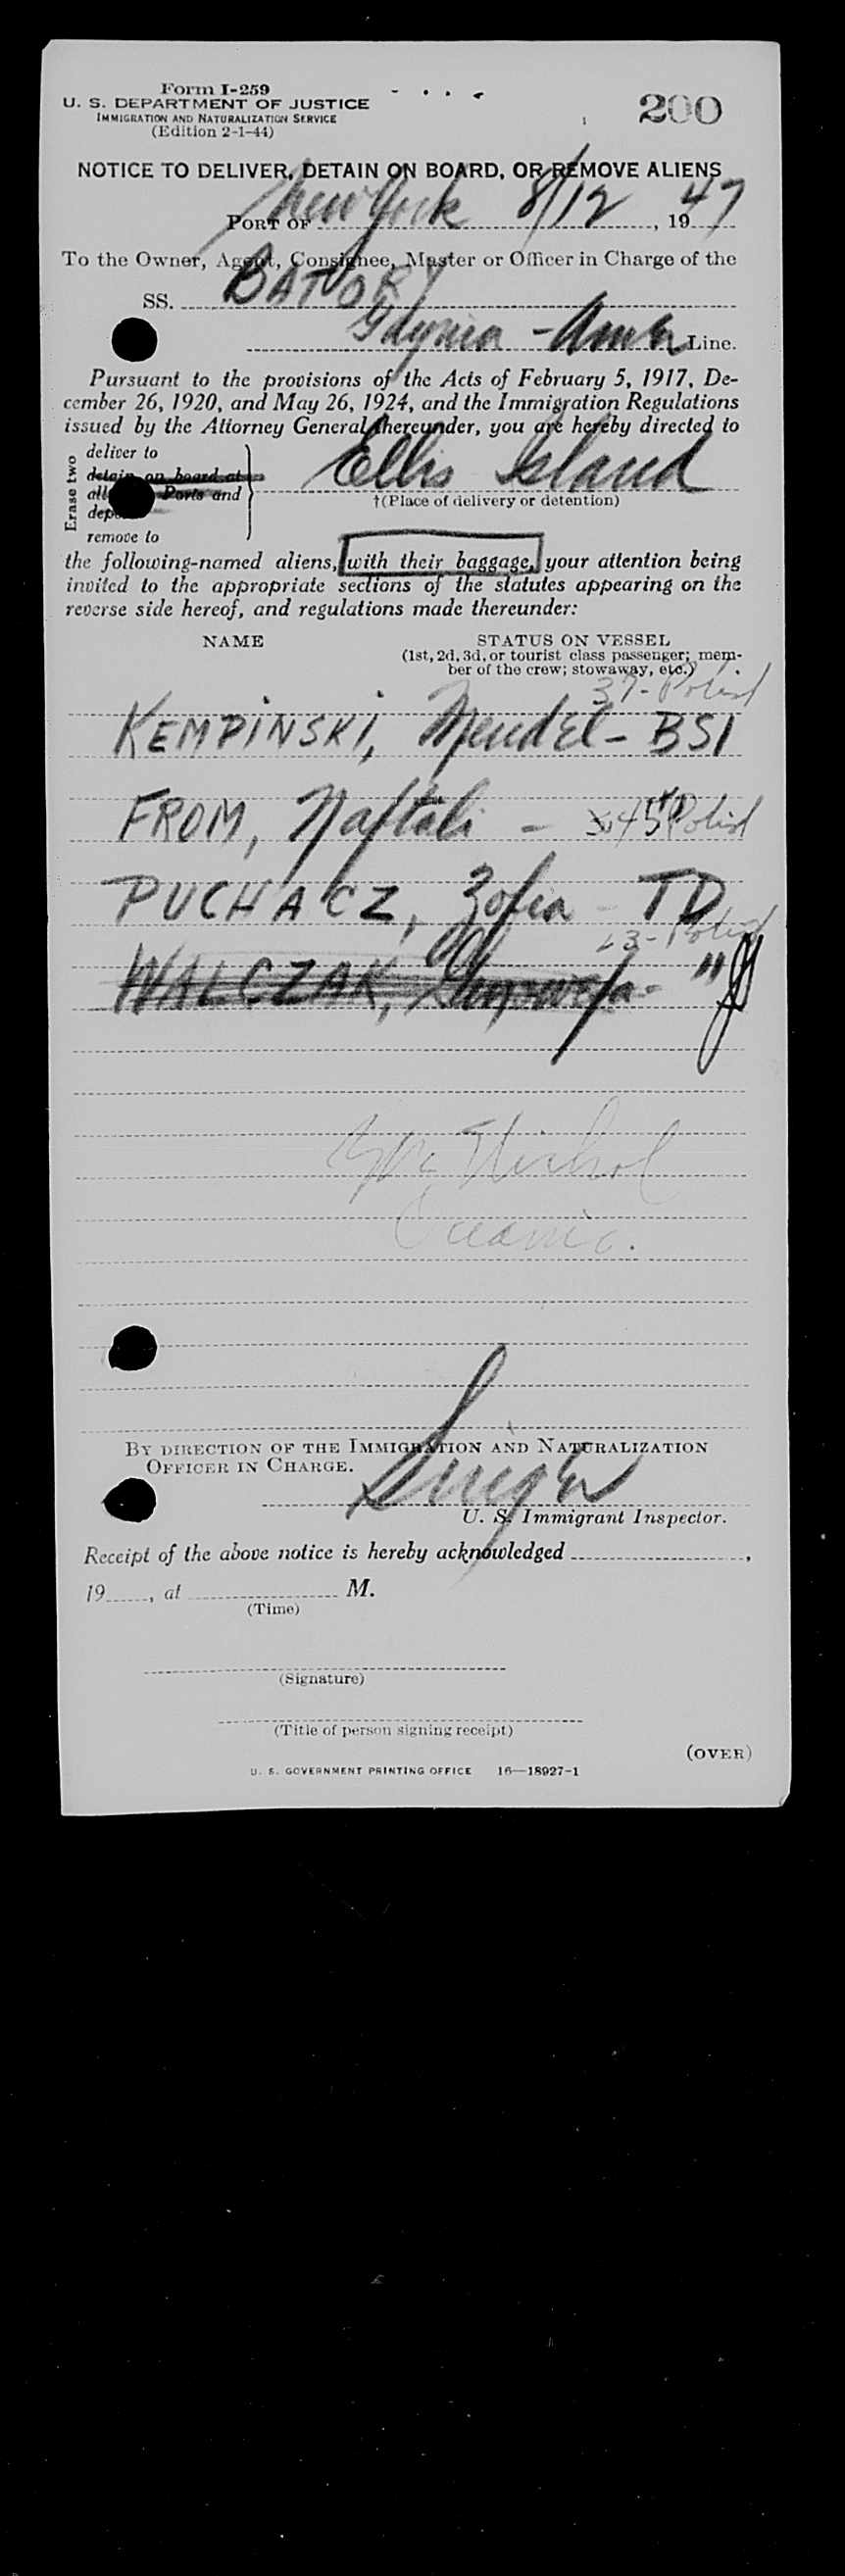 Form I-259
U. S. DEPARTMENT OF JUSTICE
IMMIGRATION AND NATURALIZATION SERVICE
(Edition 2-1-44)
200
NOTICE TO DELIVER, DETAIN ON BOARD, OR REMOVE ALIENS
PORT OF New York 8/12, 1947
To the Owner, Agent, Consignee, Master or Officer in Charge of the
SS. BATORY
Gdynia - Amer Line.
Pursuant to the provisions of the Acts of February 5, 1917, De-
cember 26, 1920, and May 26, 1924, and the Immigration Regulations
issued by the Attorney General thereunder, you are hereby directed to
Erase two
deliver to
detain on board at
all Ports and
remove to
Ellis Island
†(Place of delivery or detention)
the following-named aliens, with their baggage, your attention being
invited to the appropriate sections of the statutes appearing on the
reverse side hereof, and regulations made thereunder:
NAME STATUS ON VESSEL
(1st, 2d, 3d, or tourist class passenger; mem-
ber of the crew; stowaway, etc.)
37- Polish
KEMPINSKI, Mendel - BSI
FROM, Naftali - 45 Polish
PUCHACZ, Zofia - TD
23- Polish
WALCZAK, - "
Oceanic.
BY DIRECTION OF THE IMMIGRATION AND NATURALIZATION
OFFICER IN CHARGE.
U. S. Immigrant Inspector.
Receipt of the above notice is hereby acknowledged ,
19 , at M.
(Time)
(Signature)
(Title of person signing receipt)
(OVER)
U. S. GOVERNMENT PRINTING OFFICE 16—18927-1